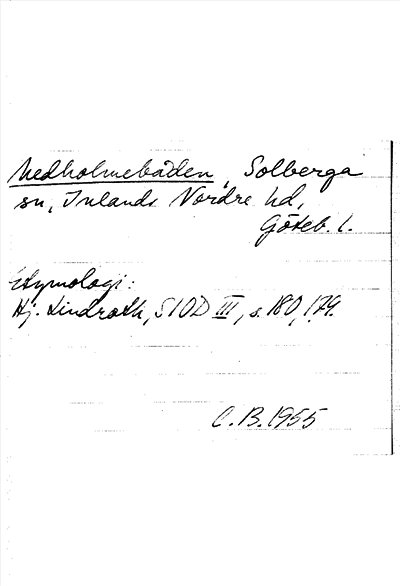 Nedholmebåden, Solberga
sn, Inlands Nordre hd,
Göteb. l.
Etymologi:
Hj. Lindroth, SIOD III, s. 180, 179.
C.B. 1955